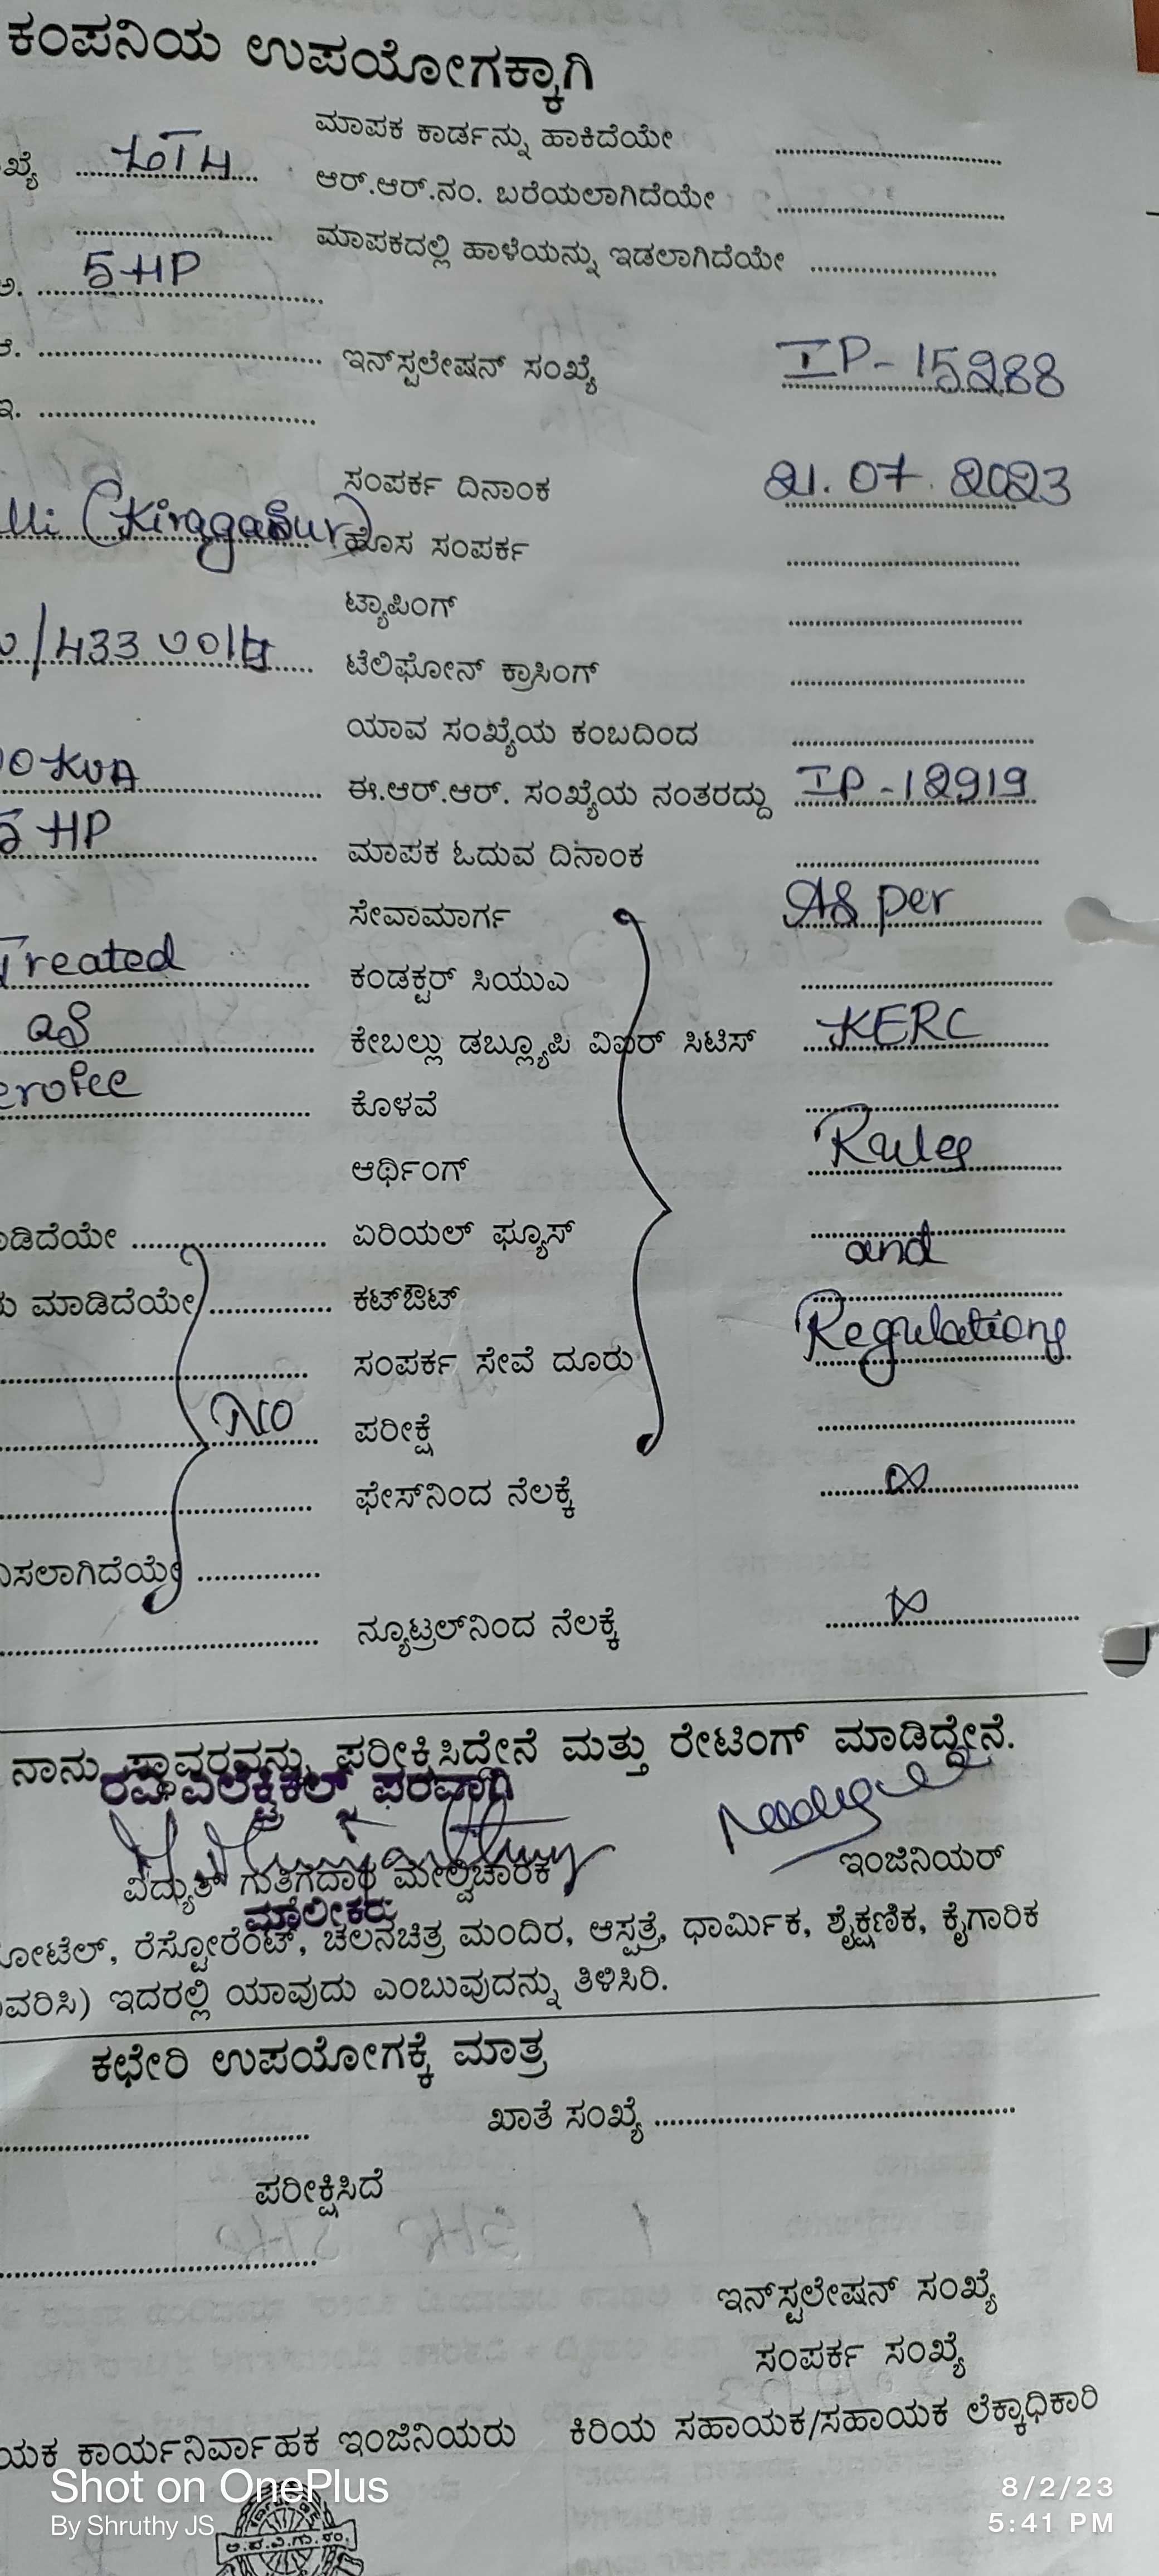 ಕಂಪನಿಯ ಉಪಯೋಗಕ್ಕಾಗಿ
ಮಾಪಕ ಕಾರ್ಡನ್ನು ಹಾಕಿದೆಯೇ
ಖ್ಯೆ
ಆರ್.ಆರ್.ನಂ. ಬರೆಯಲಾಗಿದೆಯೇ
ಮಾಪಕದಲ್ಲಿ ಹಾಳೆಯನ್ನು ಇಡಲಾಗಿದೆಯೇ
ಅ. 5 HP
ಆ. ಇನ್‌ಸ್ಟಲೇಷನ್ ಸಂಖ್ಯೆ IP-15288
ಇ.
ಸಂಪರ್ಕ ದಿನಾಂಕ 21.07.2023
lli (Kiragasur) ಹೊಸ ಸಂಪರ್ಕ
ಟ್ಯಾಪಿಂಗ್
/433 volts ಟೆಲಿಫೋನ್ ಕ್ರಾಸಿಂಗ್
ಯಾವ ಸಂಖ್ಯೆಯ ಕಂಬದಿಂದ
0 KVA ಈ.ಆರ್.ಆರ್. ಸಂಖ್ಯೆಯ ನಂತರದ್ದು IP-12919
5 HP ಮಾಪಕ ಓದುವ ದಿನಾಂಕ
ಸೇವಾಮಾರ್ಗ As per
Treated ಕಂಡಕ್ಟರ್ ಸಿಯುಎ
as ಕೇಬಲ್ಲು ಡಬ್ಲ್ಯೂಪಿ ವಿಐರ್ ಸಿಟಿಸ್ KERC
ಕೊಳವೆ
ಆರ್ಥಿಂಗ್ Rules
ಾಡಿದೆಯೇ ಏರಿಯಲ್ ಫ್ಯೂಸ್ and
ು ಮಾಡಿದೆಯೇ ಕಟ್‌ಔಟ್
ಸಂಪರ್ಕ ಸೇವೆ ದೂರು Regulations
No ಪರೀಕ್ಷೆ
ಫೇಸ್‌ನಿಂದ ನೆಲಕ್ಕೆ ∞
ಿಸಲಾಗಿದೆಯೇ
ನ್ಯೂಟ್ರಲ್‌ನಿಂದ ನೆಲಕ್ಕೆ
ನಾನು ಸ್ಥಾವರವನ್ನು ಪರೀಕ್ಷಿಸಿದ್ದೇನೆ ಮತ್ತು ರೇಟಿಂಗ್ ಮಾಡಿದ್ದೇನೆ.
ರವಿ ಎಲೆಕ್ಟ್ರಿಕಲ್ಸ್ ಪರವಾಗಿ
ವಿದ್ಯುತ್ ಗುತಿಗೆದಾರ ಮೇಲ್ವಿಚಾರಕ ಇಂಜಿನಿಯರ್
ಮಾಲೀಕರು
ೋಟೆಲ್, ರೆಸ್ಟೋರೆಂಟ್, ಚಲನಚಿತ್ರ ಮಂದಿರ, ಆಸ್ಪತ್ರೆ, ಧಾರ್ಮಿಕ, ಶೈಕ್ಷಣಿಕ, ಕೈಗಾರಿಕ
ವರಿಸಿ) ಇದರಲ್ಲಿ ಯಾವುದು ಎಂಬುವುದನ್ನು ತಿಳಿಸಿರಿ.
ಕಛೇರಿ ಉಪಯೋಗಕ್ಕೆ ಮಾತ್ರ
ಖಾತೆ ಸಂಖ್ಯೆ
ಪರೀಕ್ಷಿಸಿದೆ
ಇನ್‌ಸ್ಟಲೇಷನ್ ಸಂಖ್ಯೆ
ಸಂಪರ್ಕ ಸಂಖ್ಯೆ
ಯಕ ಕಾರ್ಯನಿರ್ವಾಹಕ ಇಂಜಿನಿಯರು ಕಿರಿಯ ಸಹಾಯಕ/ಸಹಾಯಕ ಲೆಕ್ಕಾಧಿಕಾರಿ
Shot on OnePlus
By Shruthy JS
8/2/23
5:41 PM